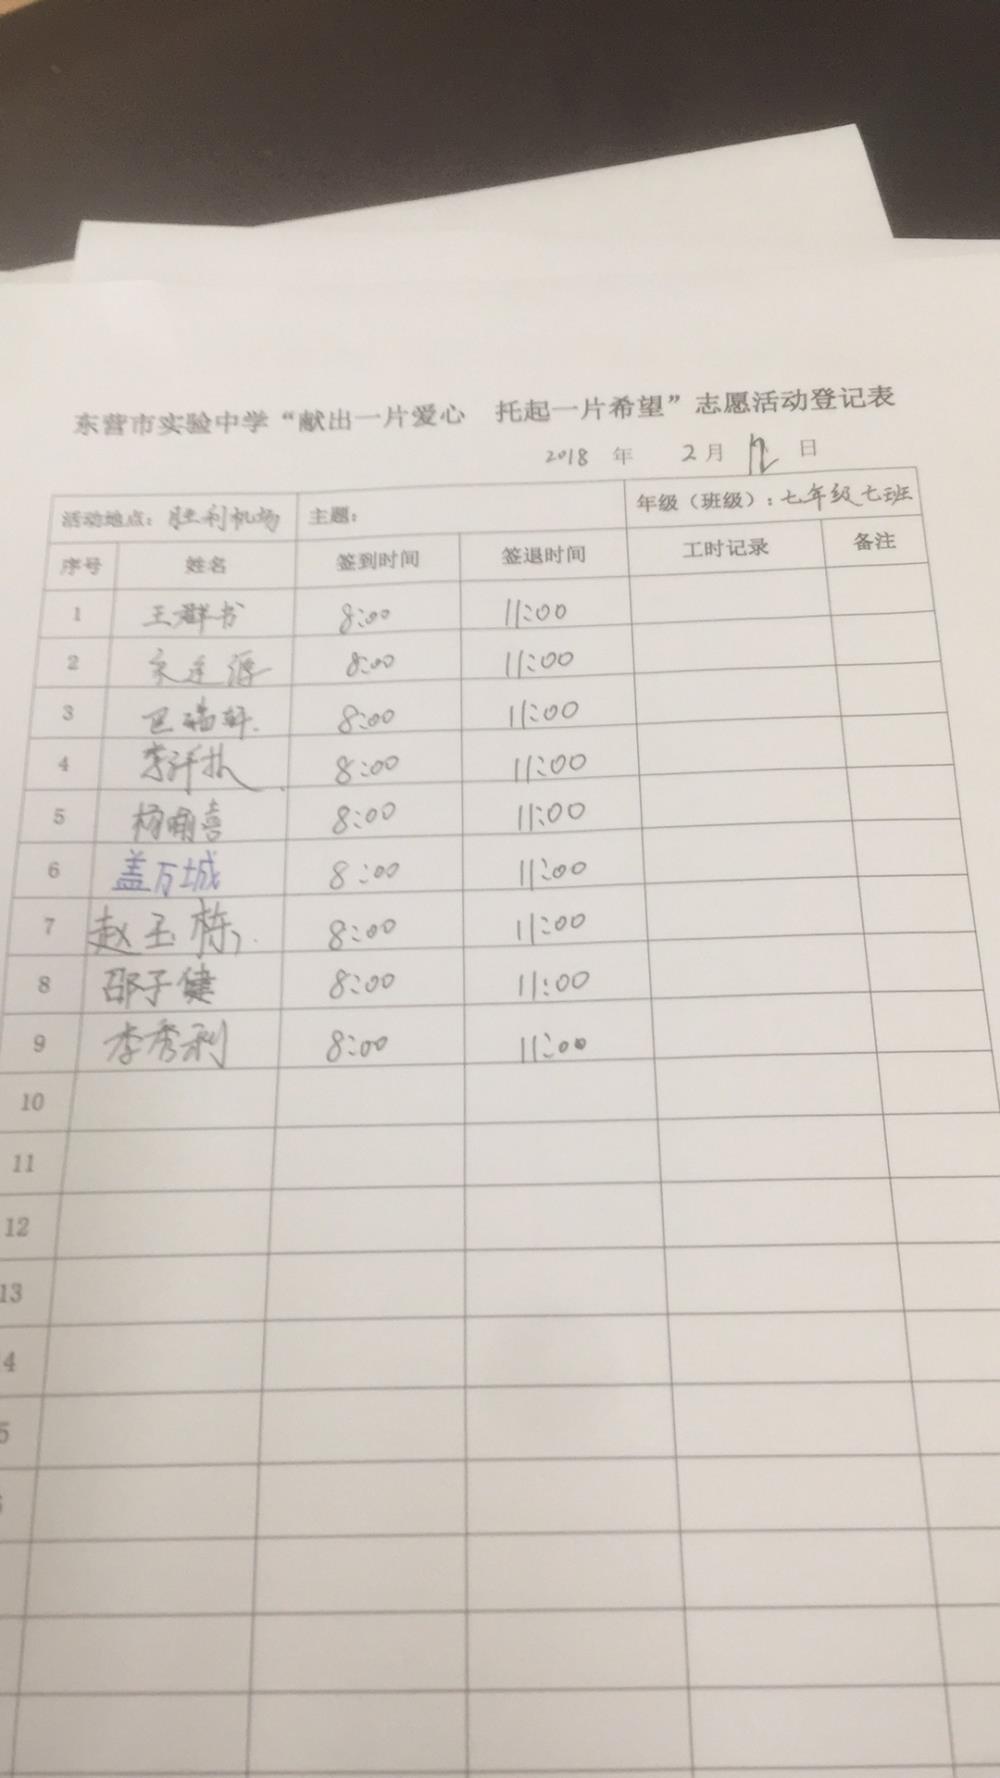 东营市实验中学“献出一片爱心 托起一片希望”志愿活动登记表
2018 年 2 月 12 日
活动地点：胜利机场 主题： 年级（班级）：七年级七班
序号 姓名 签到时间 签退时间 工时记录 备注
1 王群书 8:00 11:00
2 8:00 11:00
3 8:00 11:00
4 8:00 11:00
5 8:00 11:00
6 盖万城 8:00 11:00
7 赵玉栋 8:00 11:00
8 邵子健 8:00 11:00
9 李秀利 8:00 11:00
10
11
12
13
4
5